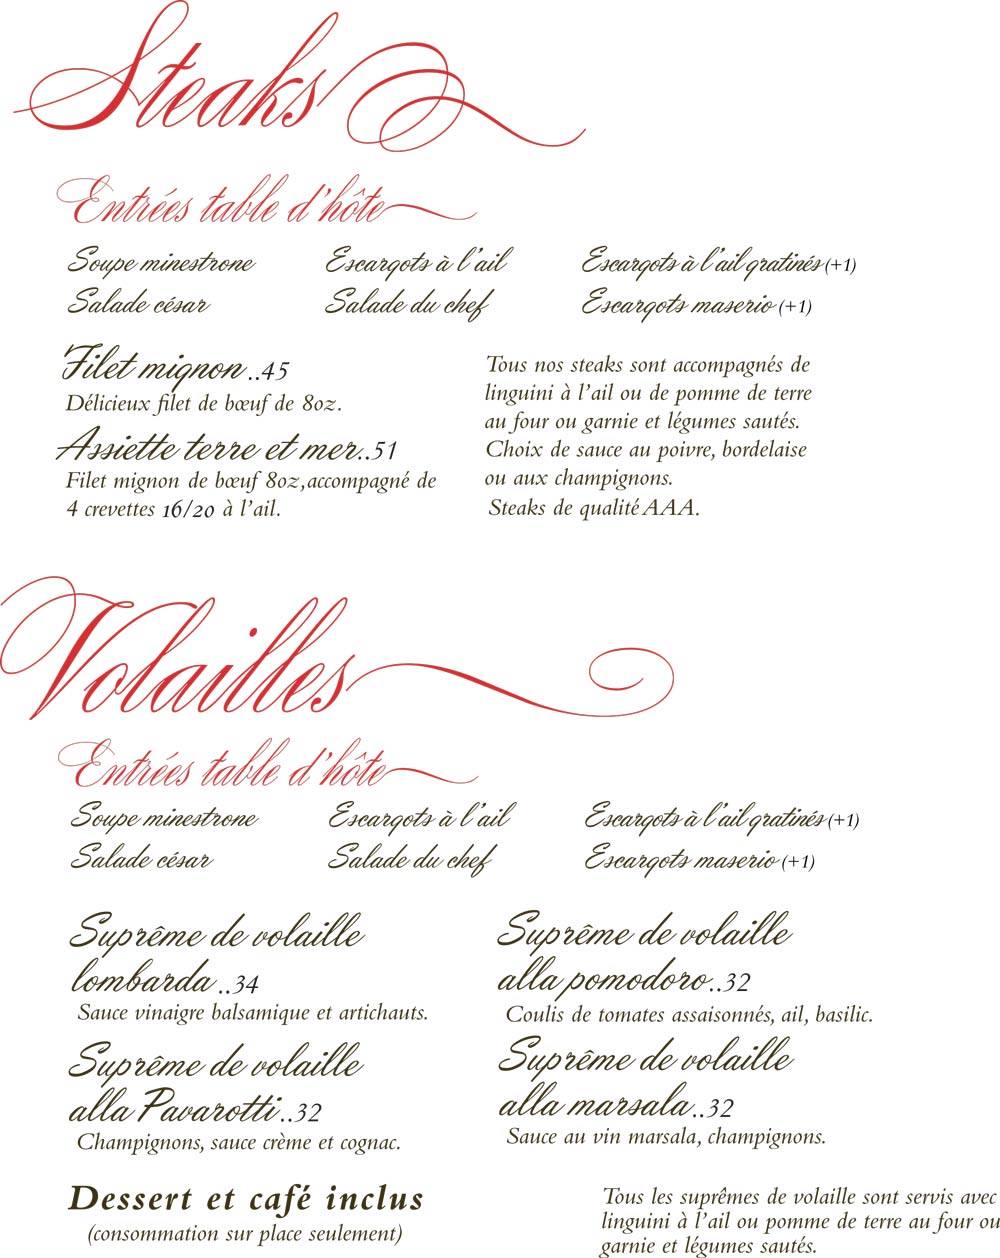 Steaks
Entrées table d'hôte
Soupe minestrone
Escargots à l'ail
Escargots à l'ail gratinés (+1)
Salade césar
Salade du chef
Escargots maserio (+1)
Filet mignon..45
Délicieux filet de bœuf de 8oz.
Assiette terre et mer..51
Filet mignon de bœuf 8oz,accompagné de
4 crevettes 16/20 à l'ail.
Tous nos steaks sont accompagnés de
linguini à l'ail ou de pomme de terre
au four ou garnie et légumes sautés.
Choix de sauce au poivre, bordelaise
ou aux champignons.
Steaks de qualité AAA.
Volailles
Entrées table d'hôte
Soupe minestrone
Escargots à l'ail
Escargots à l'ail gratinés (+1)
Salade césar
Salade du chef
Escargots maserio (+1)
Suprême de volaille
lombarda..34
Sauce vinaigre balsamique et artichauts.
Suprême de volaille
alla pomodoro..32
Coulis de tomates assaisonnés, ail, basilic.
Suprême de volaille
alla Pavarotti..32
Champignons, sauce crème et cognac.
Suprême de volaille
alla marsala..32
Sauce au vin marsala, champignons.
Dessert et café inclus
(consommation sur place seulement)
Tous les suprêmes de volaille sont servis avec
linguini à l'ail ou pomme de terre au four ou
garnie et légumes sautés.